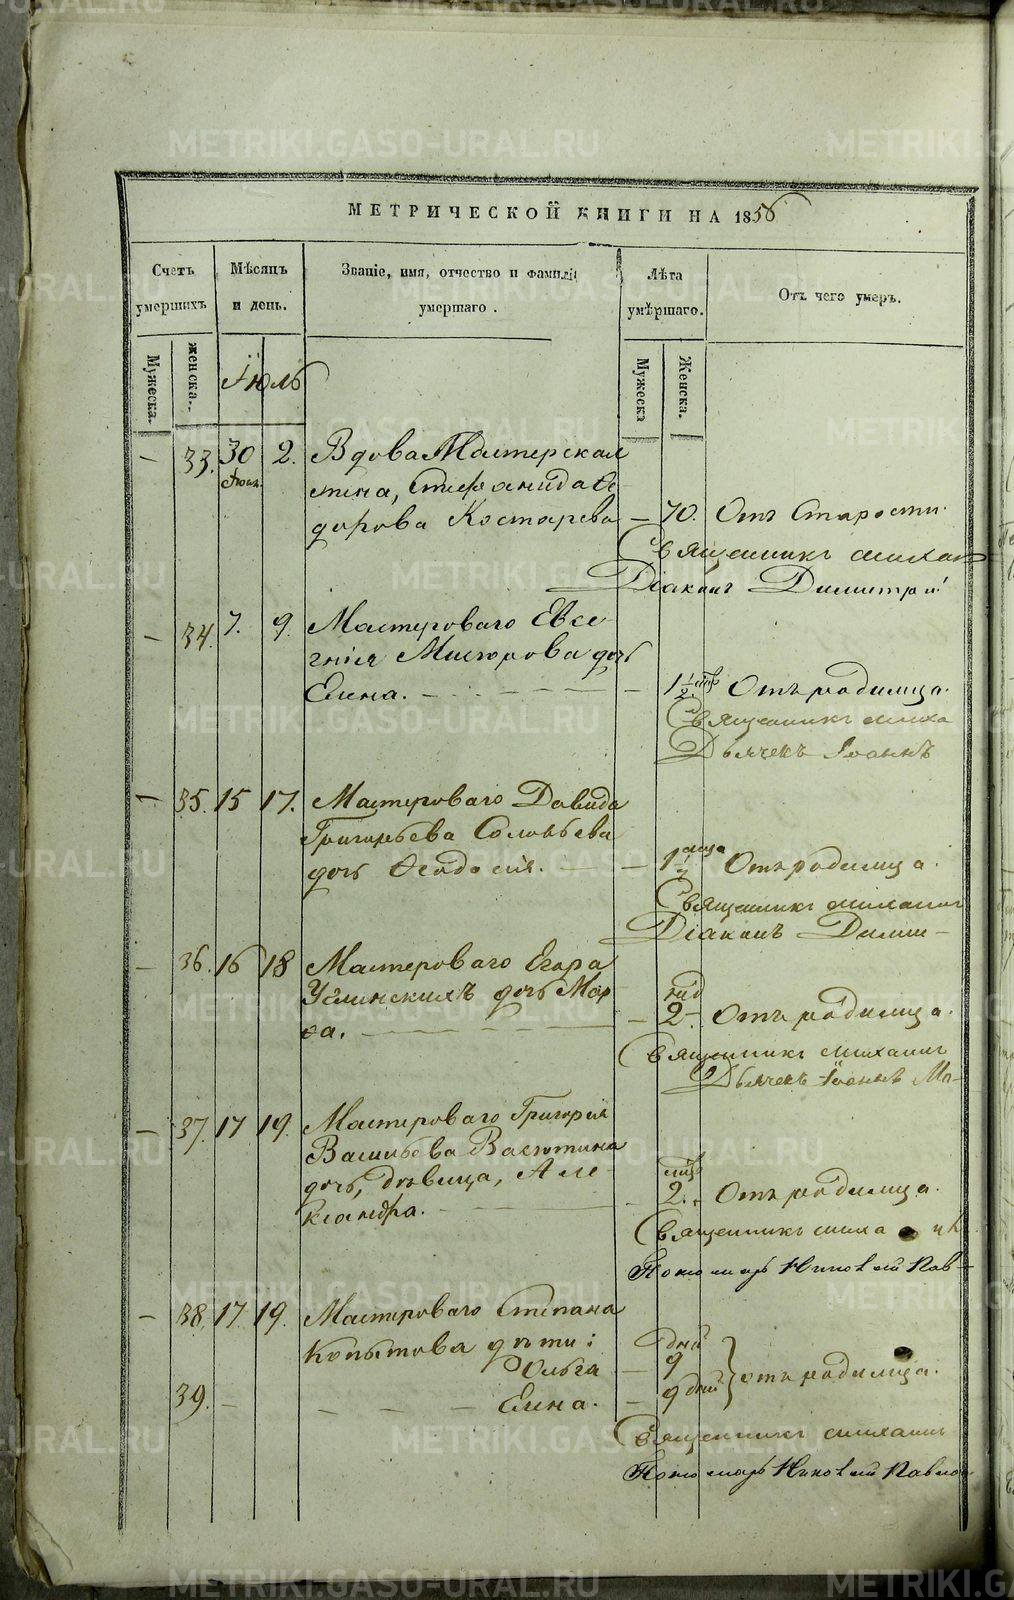 METRIKI.GASO-URAL.RU
МЕТРИЧЕСКОЙ КНИГИ НА 1856
Счетъ умершихъ
Мѣсяцъ и день.
Званіе, имя, отчество и фамилія умершаго.
Лѣта умѣршаго.
Отъ чего умеръ.
Мужеска.
женска.
Мужеска
Женска.
Іюль
— 33. 30 Іюня. 2. Вдова Мастерская
жена, Стефанида Ѳе-
дорова Костарева — 70. Отъ Старости.
Священникъ Михаи
Діаконъ Димитрій
— 34. 7. 9. Мастероваго Евге-
нія дочь
Елена. — 1½ мѣс Отъ родимца.
Священникъ Миха
Дьячекъ Іоаннъ
— 35. 15 17. Мастероваго Давида
Григорьева Соловьева
дочь Ѳеодосія. — 1½ мѣсца Отъ родимца.
Священникъ Михаилъ
Діаконъ Дими—
— 36. 16 18 Мастероваго Егора
Углинскихъ дочь Мар-
ѳа. — 2. Отъ родимца.
Священникъ Михаилъ
Дьячекъ Іоаннъ Ма—
— 37. 17 19. Мастероваго Григорія
Васильева Васютина
дочь, дѣвица, Але-
ксандра. — 2. Отъ родимца.
Священникъ Миха илъ
Пономарь Николай Пав—
— 38. 17. 19. Мастероваго Степана
Копытова дѣти:
Ольга — 9 дней
39. — Елена. — 9 дней } отъ родимца.
Священникъ Михаилъ
Пономарь Николай Павлов